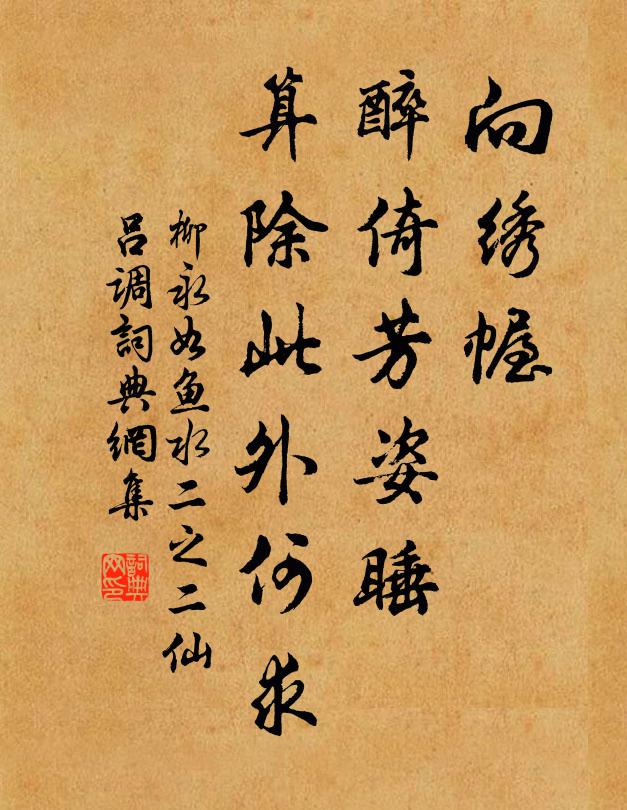 向绣幄
醉倚芳姿睡
算除此外何求
柳永如鱼水二之二仙
吕調詞典網集
詞典
网印